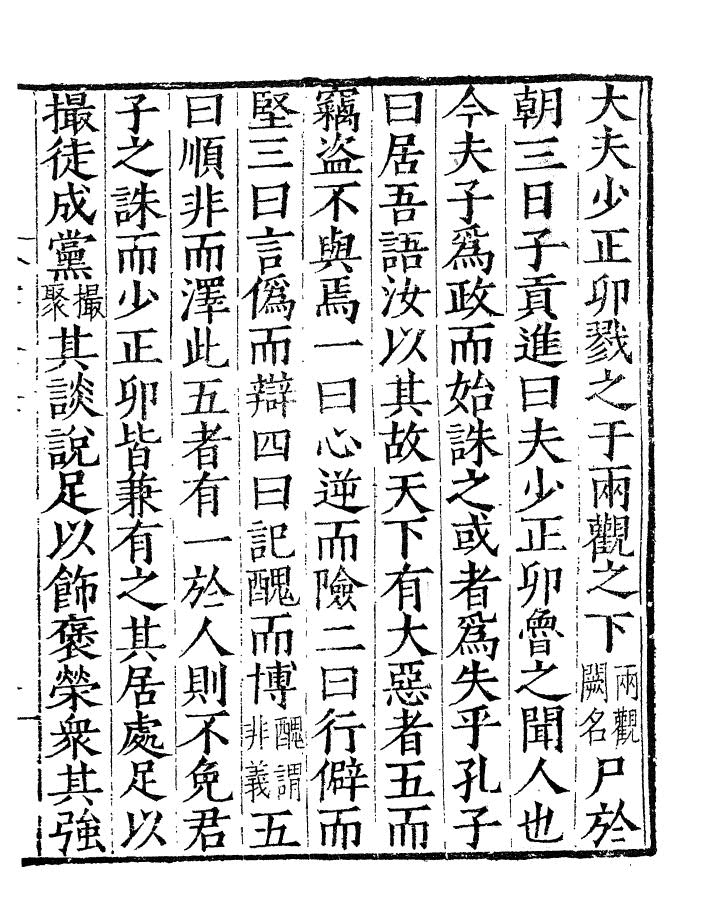 大夫少正卯戮之于兩觀之下兩觀闕名尸於
朝三日子貢進曰夫少正卯魯之聞人也
今夫子爲政而始誅之或者爲失乎孔子
曰居吾語汝以其故天下有大惡者五而
竊盜不與焉一曰心逆而險二曰行僻而
堅三曰言僞而辯四曰記醜而博醜謂非義五
曰順非而澤此五者有一於人則不免君
子之誅而少正卯皆兼有之其居處足以
撮徒成黨撮聚其談說足以飾褒榮衆其強